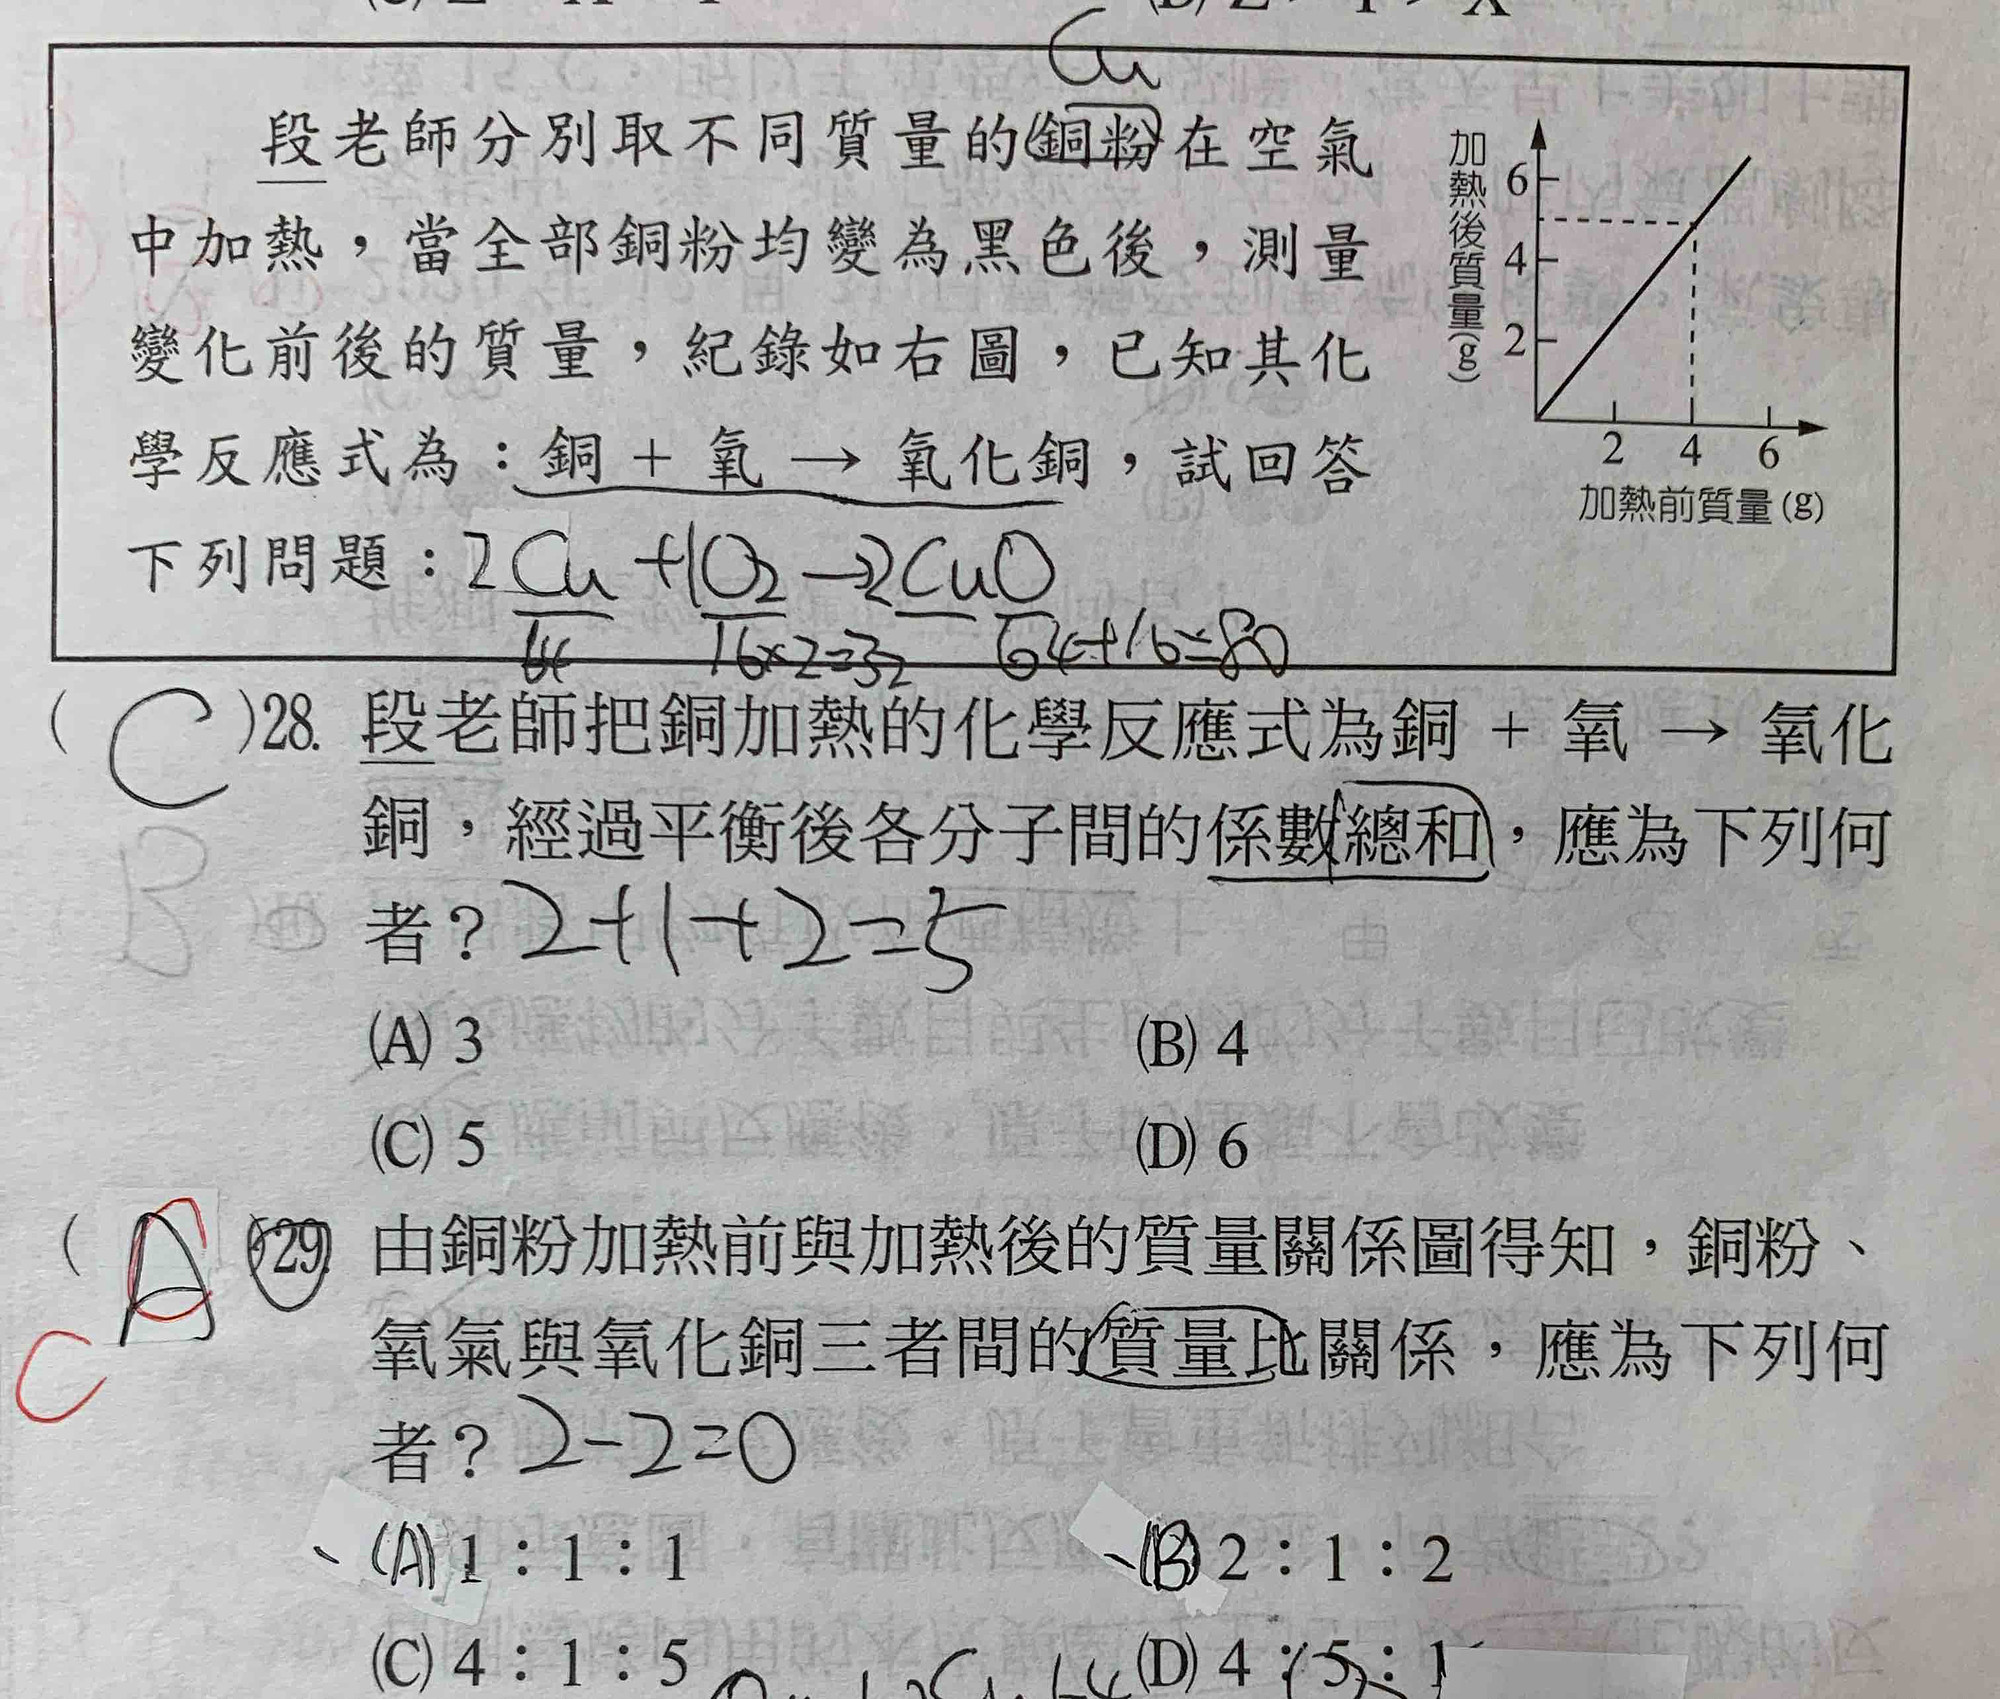 Cu
段老師分別取不同質量的銅粉在空氣
中加熱，當全部銅粉均變為黑色後，測量
變化前後的質量，紀錄如右圖，已知其化
學反應式為：銅 + 氧 → 氧化銅，試回答
下列問題：2Cu+1O₂→2CuO
64 16×2=32 64+16=80
加熱後質量(g)
6
4
2
2 4 6
加熱前質量(g)
(C)28. 段老師把銅加熱的化學反應式為銅 + 氧 → 氧化
銅，經過平衡後各分子間的係數總和，應為下列何
者？2+1+2=5
B
(A) 3 (B) 4
(C) 5 (D) 6
(A)29. 由銅粉加熱前與加熱後的質量關係圖得知，銅粉、
C
氧氣與氧化銅三者間的質量比關係，應為下列何
者？2-2=0
(A) 1：1：1 (B) 2：1：2
(C) 4：1：5 (D) 4：5：1